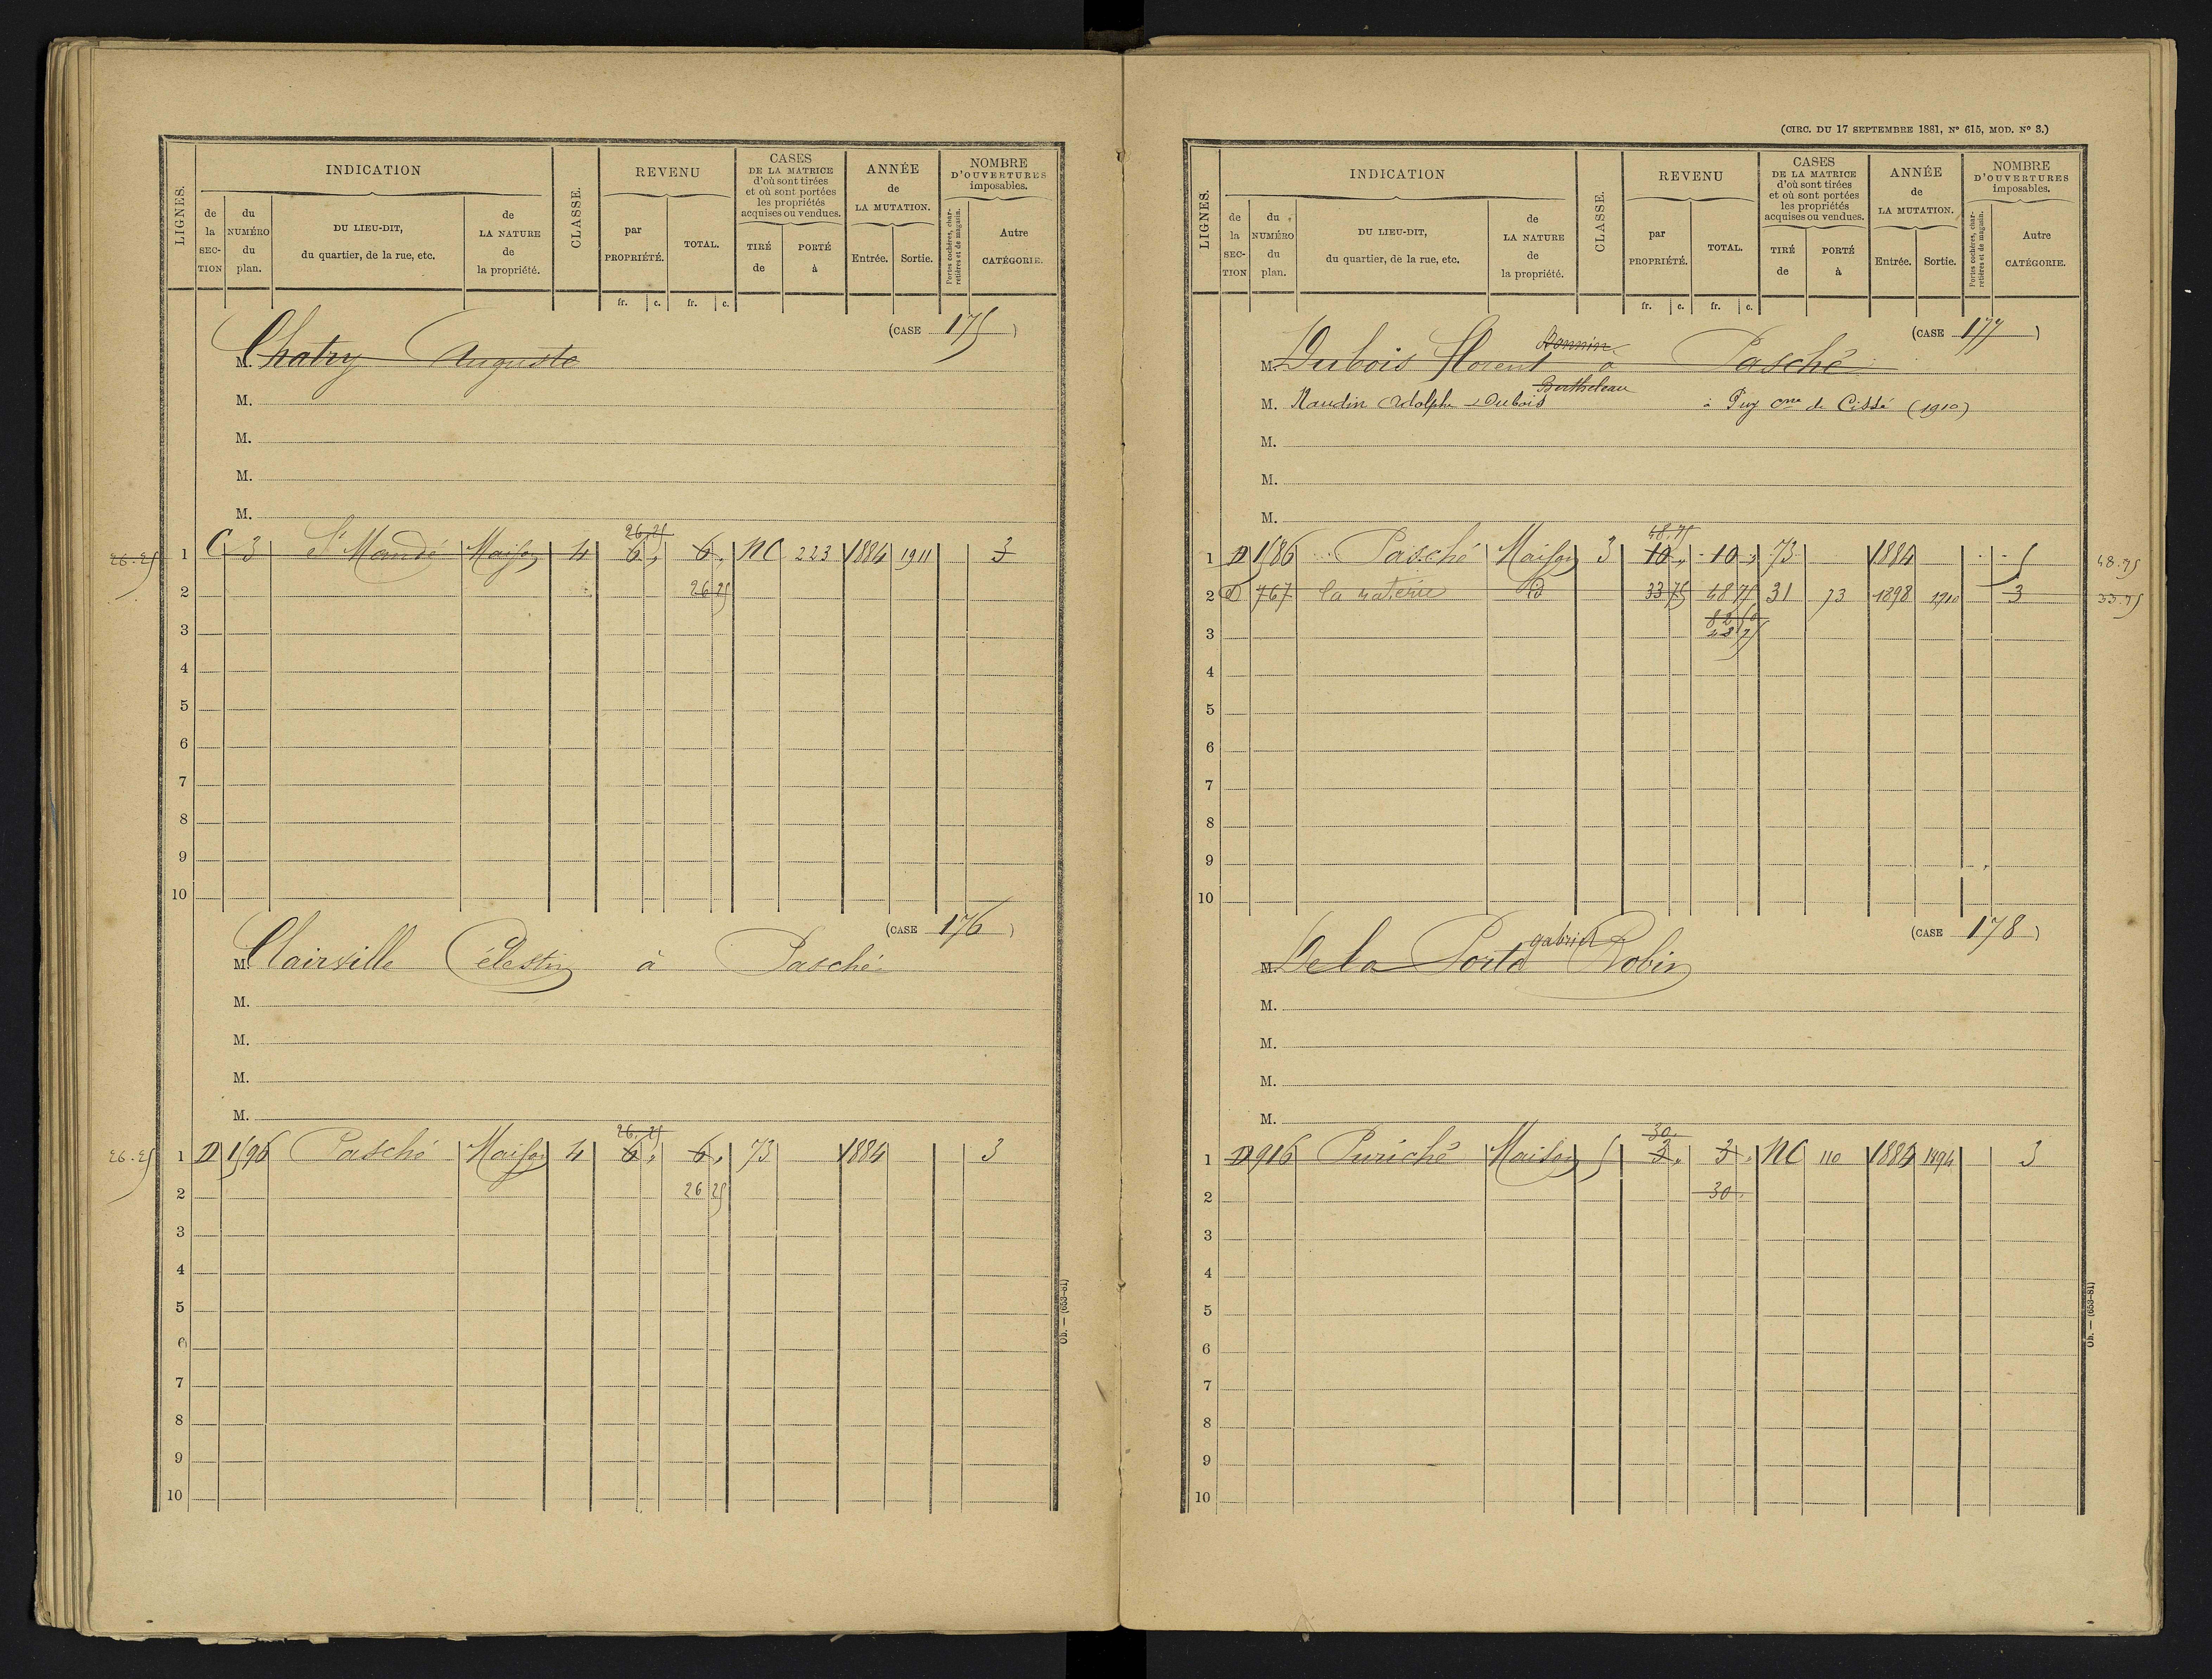 LIGNES.
INDICATION
de la SECTION
du NUMÉRO du plan.
DU LIEU-DIT, du quartier, de la rue, etc.
de LA NATURE de la propriété.
CLASSE.
REVENU
par PROPRIÉTÉ.
TOTAL.
fr. c. fr. c.
CASES DE LA MATRICE d'où sont tirées et où sont portées les propriétés acquises ou vendues.
TIRÉ de
PORTÉ à
ANNÉE de LA MUTATION.
Entrée. Sortie.
NOMBRE D'OUVERTURES imposables.
Portes cochères, charretières et de magasin.
Autre CATÉGORIE.
(CASE 175)
M. Chatry Auguste
M.
M.
M.
M.
26.25
26.25 1 C 3 St Mandé Maison 4 6 „ 6 „ NC 223 1884 1911 3
2 26 25
3
4
5
6
7
8
9
10
(CASE 176)
M. Clairville Célestin à Pasché
M.
M.
M.
M.
26.25
26.25 1 D 1596 Pasché Maison 4 6 „ 6 „ 73 1884 3
2 26 25
3
4
5
6
7
8
9
10
Ob. — (653-81)
(CIRC. DU 17 SEPTEMBRE 1881, N° 615, MOD. N° 3.)
LIGNES.
INDICATION
de la SECTION
du NUMÉRO du plan.
DU LIEU-DIT, du quartier, de la rue, etc.
de LA NATURE de la propriété.
CLASSE.
REVENU
par PROPRIÉTÉ.
TOTAL.
fr. c. fr. c.
CASES DE LA MATRICE d'où sont tirées et où sont portées les propriétés acquises ou vendues.
TIRÉ de
PORTÉ à
ANNÉE de LA MUTATION.
Entrée. Sortie.
NOMBRE D'OUVERTURES imposables.
Portes cochères, charretières et de magasin.
Autre CATÉGORIE.
(CASE 177)
M. Dubois Florent à Pasché
Bertheleau
M. Naudin Adolphe Dubois à Puy Cne de Cissé (1910)
M.
M.
M.
48.75
1 D 1586 Pasché Maison 3 10 „ 10 „ 73 1884 5 48.75
2 D 767 la raterie id 33 75 48 75 31 73 1898 1910 3 33.75
82 50
3 48 75
4
5
6
7
8
9
10
(CASE 178)
gabriel
M. De la Porte Robin
M.
M.
M.
M.
30.
1 D 916 Puriché Maison 5 3 „ 3 „ NC 110 1884 1894 3
2 30 .
3
4
5
6
7
8
9
10
Ob. — (653-81)